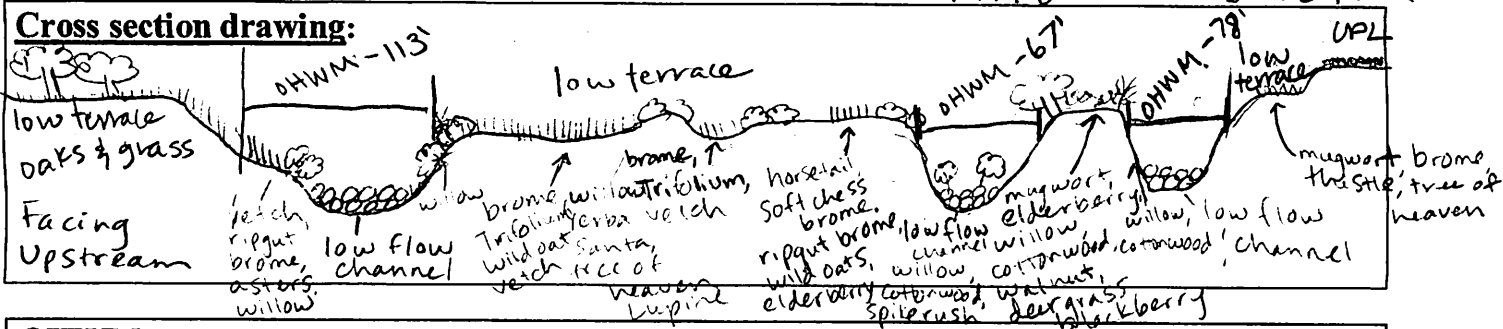 Cross section drawing:
OHWM - 113'
low terrace
OHWM - 67'
OHWM - 78'
low
terrace
UPL
low terrace
oaks & grass
Facing
Upstream
vetch,
ripgut
brome,
asters,
willow
low flow
channel
willow
brome,
Trifolium,
wild oat,
vetch
willow
Yerba
Santa,
tree of
heaven
Lupine
brome,
Trifolium,
vetch
horsetail,
soft chess
brome,
ripgut brome,
wild oats,
elderberry
low flow
channel
willow,
cottonwood,
spikerush
mugwort,
elderberry,
willow,
cottonwood,
walnut,
deergrass
blackberry
willow,
cottonwood,
low flow
channel
mugwort, brome,
thistle, tree of
heaven